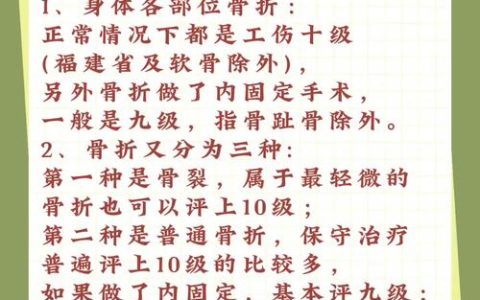 1、身体各部位骨折:
正常情况下都是工伤十级
(福建省及软骨除外),
另外骨折做了内固定手术,
一般是九级，指骨趾骨除外。
2、骨折又分为三种:
第一种是骨裂，属于最轻微的
骨折也可以评上10级;
第二种是普通骨折，保守治疗
普遍评上10级的比较多,
如果做了内固定，基本评九级;